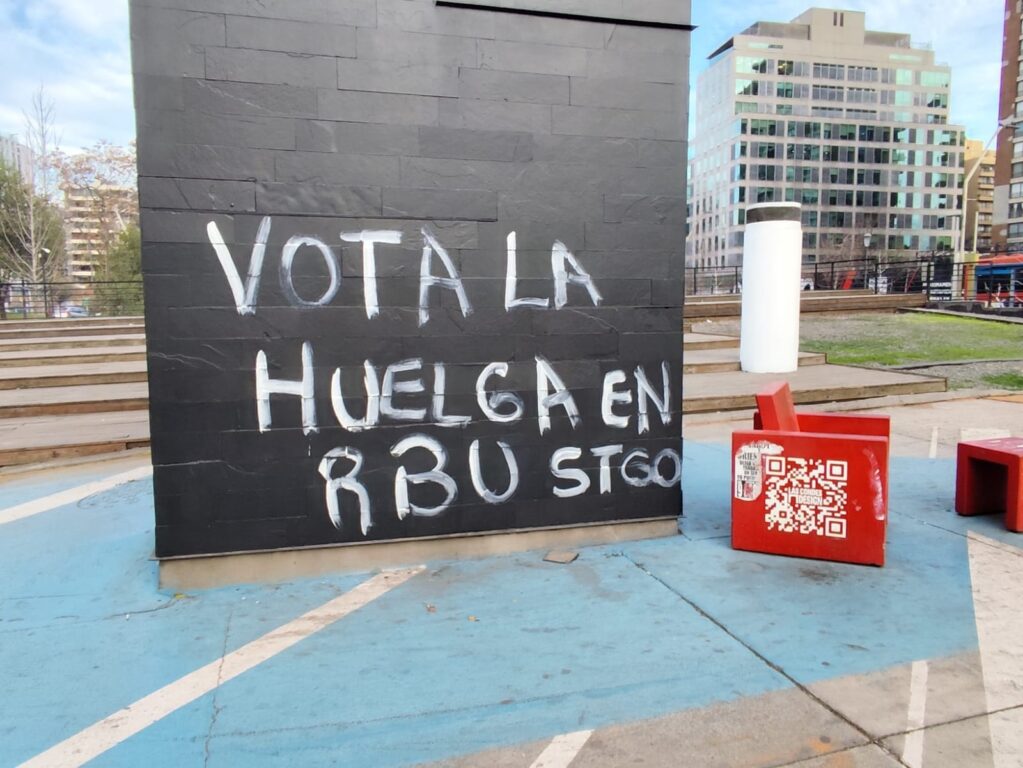 VOTA LA
HUELGA EN
RBU STGO
LAS CONDES
DESIGN